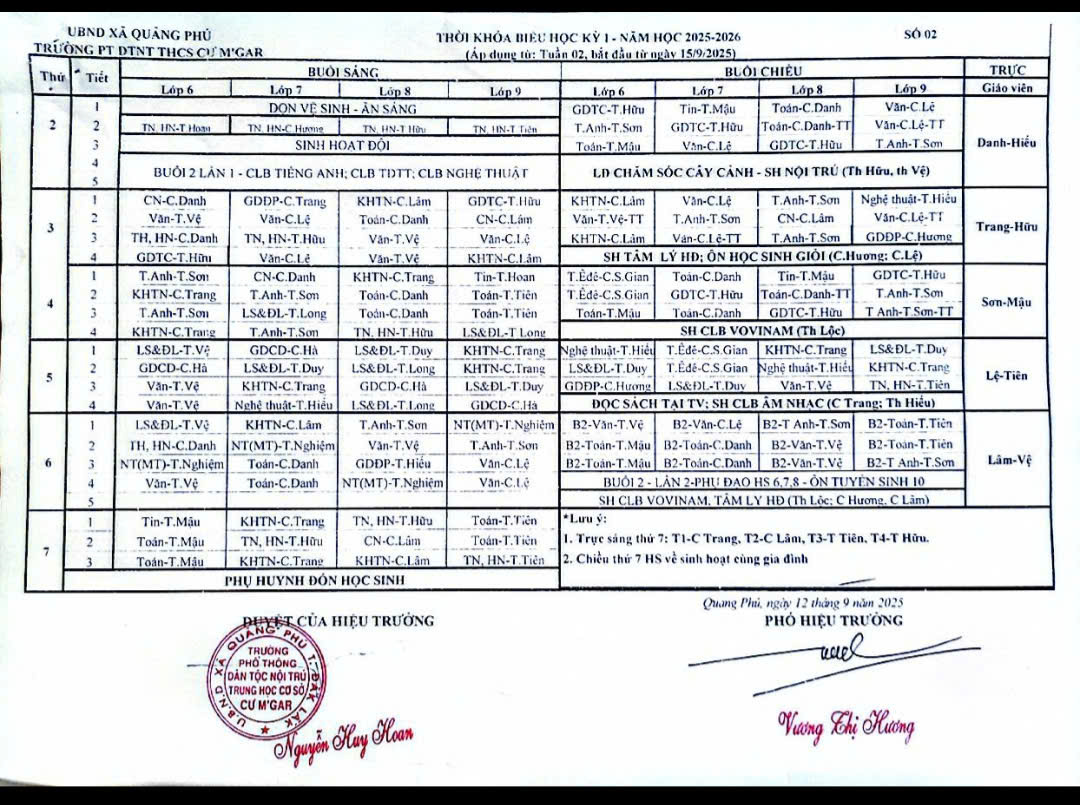 UBND XÃ QUẢNG PHÚ
TRƯỜNG PT DTNT THCS CƯ M'GAR
THỜI KHÓA BIỂU HỌC KỲ I - NĂM HỌC 2025-2026
(Áp dụng từ: Tuần 02, bắt đầu từ ngày 15/9/2025)
SỐ 02
Thứ Tiết BUỔI SÁNG BUỔI CHIỀU TRỰC
Lớp 6 Lớp 7 Lớp 8 Lớp 9 Lớp 6 Lớp 7 Lớp 8 Lớp 9 Giáo viên
2 Danh-Hiếu
1 DỌN VỆ SINH - ĂN SÁNG GDTC-T.Hữu Tin-T.Mậu Toán-C.Danh Văn-C.Lệ
2 TN, HN-T Hoan TN, HN-C Hương TN, HN-T Hữu TN, HN-T Tiên T.Anh-T.Sơn GDTC-T.Hữu Toán-C.Danh-TT Văn-C.Lệ-TT
3 SINH HOẠT ĐỘI Toán-T.Mậu Văn-C.Lệ GDTC-T.Hữu T.Anh-T.Sơn
4
5 BUỔI 2 LẦN 1 - CLB TIẾNG ANH; CLB TDTT; CLB NGHỆ THUẬT LĐ CHĂM SÓC CÂY CẢNH - SH NỘI TRÚ (Th Hữu, th Vệ)
3 Trang-Hữu
1 CN-C.Danh GDĐP-C.Trang KHTN-C.Lâm GDTC-T.Hữu KHTN-C.Lâm Văn-C.Lệ T.Anh-T.Sơn Nghệ thuật-T.Hiếu
2 Văn-T.Vệ Văn-C.Lệ Toán-C.Danh CN-C.Lâm Văn-T.Vệ-TT T.Anh-T.Sơn CN-C.Lâm Văn-C.Lệ-TT
3 TH, HN-C.Danh TN, HN-T.Hữu Văn-T.Vệ Văn-C.Lệ KHTN-C.Lâm Văn-C.Lệ-TT T.Anh-T.Sơn GDĐP-C.Hương
4 GDTC-T.Hữu Văn-C.Lệ Văn-T.Vệ KHTN-C.Lâm SH TÂM LÝ HĐ; ÔN HỌC SINH GIỎI (C.Hương; C.Lệ)
4 Sơn-Mậu
1 T.Anh-T.Sơn CN-C.Danh KHTN-C.Trang Tin-T.Hoan T.Êđê-C.S.Gian Toán-C.Danh Tin-T.Mậu GDTC-T.Hữu
2 KHTN-C.Trang T.Anh-T.Sơn Toán-C.Danh Toán-T.Tiên T.Êđê-C.S.Gian GDTC-T.Hữu Toán-C.Danh-TT T.Anh-T.Sơn
3 T.Anh-T.Sơn LS&ĐL-T.Long Toán-C.Danh Toán-T.Tiên Toán-T.Mậu Toán-C.Danh GDTC-T.Hữu T Anh-T.Sơn-TT
4 KHTN-C.Trang T.Anh-T.Sơn TN, HN-T.Hữu LS&ĐL-T Long SH CLB VOVINAM (Th Lộc)
5 Lệ-Tiên
1 LS&ĐL-T.Vệ GDCD-C.Hà LS&ĐL-T.Duy KHTN-C.Trang Nghệ thuật-T.Hiếu T.Êđê-C.S.Gian KHTN-C.Trang LS&ĐL-T.Duy
2 GDCD-C.Hà LS&ĐL-T.Duy LS&ĐL-T.Long KHTN-C.Trang LS&ĐL-T.Duy T.Êđê-C.S.Gian Nghệ thuật-T.Hiếu KHTN-C.Trang
3 Văn-T.Vệ KHTN-C.Trang GDCD-C.Hà LS&ĐL-T.Duy GDĐP-C.Hương LS&ĐL-T.Duy Văn-T.Vệ TN, HN-T.Tiên
4 Văn-T.Vệ Nghệ thuật-T.Hiếu LS&ĐL-T.Long GDCD-C.Hà ĐỌC SÁCH TẠI TV; SH CLB ÂM NHẠC (C Trang; Th Hiếu)
6 Lâm-Vệ
1 LS&ĐL-T.Vệ KHTN-C.Lâm T.Anh-T.Sơn NT(MT)-T.Nghiệm B2-Văn-T.Vệ B2-Văn-C.Lệ B2-T Anh-T.Sơn B2-Toán-T.Tiên
2 TH, HN-C.Danh NT(MT)-T.Nghiệm Văn-T.Vệ T.Anh-T.Sơn B2-Toán-T.Mậu B2-Toán-C.Danh B2-Văn-T.Vệ B2-Toán-T.Tiên
3 NT(MT)-T.Nghiệm Toán-C.Danh GDĐP-T.Hiếu Văn-C.Lệ B2-Toán-T.Mậu B2-Toán-C.Danh B2-Văn-T.Vệ B2-T Anh-T.Sơn
4 Văn-T.Vệ Toán-C.Danh NT(MT)-T.Nghiệm Văn-C.Lệ BUỔI 2 - LẦN 2-PHỤ ĐẠO HS 6,7,8 - ÔN TUYỂN SINH 10
5 SH CLB VOVINAM, TÂM LÝ HĐ (Th Lộc; C Hương, C Lâm)
7
1 Tin-T.Mậu KHTN-C.Trang TN, HN-T.Hữu Toán-T.Tiên *Lưu ý:
2 Toán-T.Mậu TN, HN-T.Hữu CN-C.Lâm Toán-T.Tiên 1. Trực sáng thứ 7: T1-C Trang, T2-C Lâm, T3-T Tiên, T4-T Hữu.
3 Toán-T.Mậu KHTN-C.Trang KHTN-C.Lâm TN, HN-T.Tiên 2. Chiều thứ 7 HS về sinh hoạt cùng gia đình
PHỤ HUYNH ĐÓN HỌC SINH
Quảng Phú, ngày 12 tháng 9 năm 2025
DUYỆT CỦA HIỆU TRƯỞNG
PHÓ HIỆU TRƯỞNG
U.B.N.D XÃ QUẢNG PHÚ T. ĐẮK LẮK
TRƯỜNG
PHỔ THÔNG
DÂN TỘC NỘI TRÚ
TRUNG HỌC CƠ SỞ
CƯ M'GAR
Nguyễn Huy Hoan
Vương Thị Hương